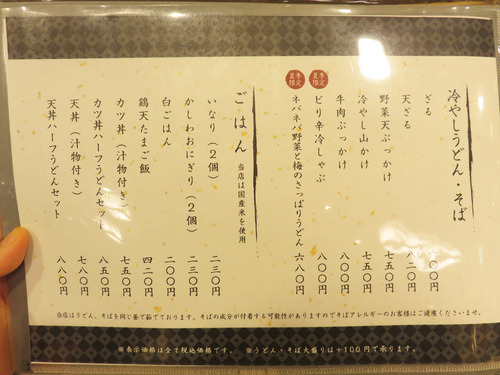 冷やしうどん・そば
ざる 〇〇円
天ざる 八二〇円
野菜天ぶっかけ 七五〇円
冷やし山かけ 七五〇円
牛肉ぶっかけ 八〇〇円
夏季限定 ピリ辛冷しゃぶ 八〇〇円
夏季限定 ネバネバ野菜と梅のさっぱりうどん 六八〇円
ごはん 当店は国産米を使用
いなり（2個） 二三〇円
かしわおにぎり（2個） 二三〇円
白ごはん 二〇〇円
鶏天たまご飯 四二〇円
カツ丼（汁物付き） 七五〇円
カツ丼ハーフうどんセット 八五〇円
天丼（汁物付き） 七八〇円
天丼ハーフうどんセット 八八〇円
当店はうどん、そばを同じ釜で茹でております。そばの成分が付着する可能性がありますのでそばアレルギーのお客様はご遠慮くださいませ。
※表示価格は全て税込価格です。 ※うどん・そば大盛りは＋100円で承ります。